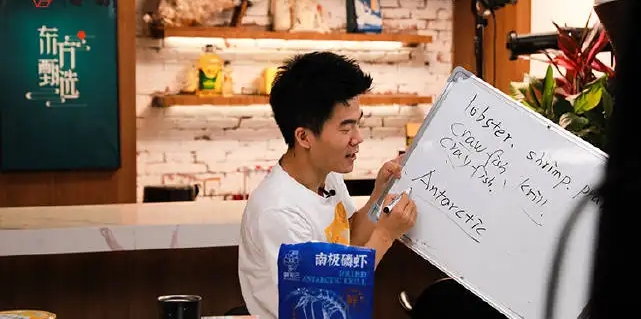 东方
甄选
lobster. shrimp.
crawfish
crayfish. krill.
Antarctic
南极磷虾
ANTARCTIC KRILL